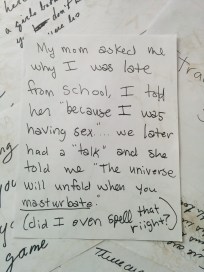 My mom asked me
why I was late
from school, I told
her "because I was
having sex".... we later
had a "talk" and she
told me "The universe
will unfold when you
masturbate."
(did I even spell that
riight?)
game